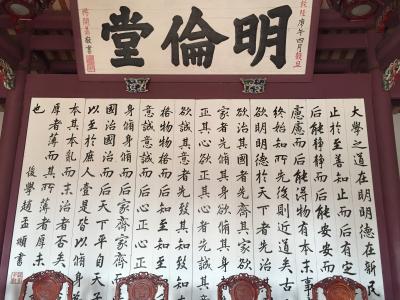 明倫堂
庚午四月穀旦
敬書
大學之道在明明德在新民
止於至善知止而后有定
后能靜靜而后能安安而
慮慮而后能得物有本末事
終始知所先後則近道矣古
欲明明德於天下者先治
欲治其國者先齊其家欲
家者先脩其身欲脩其身
正其心欲正其心者先誠
欲誠其意者先致其知致
格物物格而后知至知至
意誠意誠而后心正心正
身脩身脩而后家齊家齊
國治國治而后天下平自天子
以至於庶人壹是皆以脩身
本其本亂而末治者否矣
厚者薄而其所薄者厚未
也
後學趙孟頫書